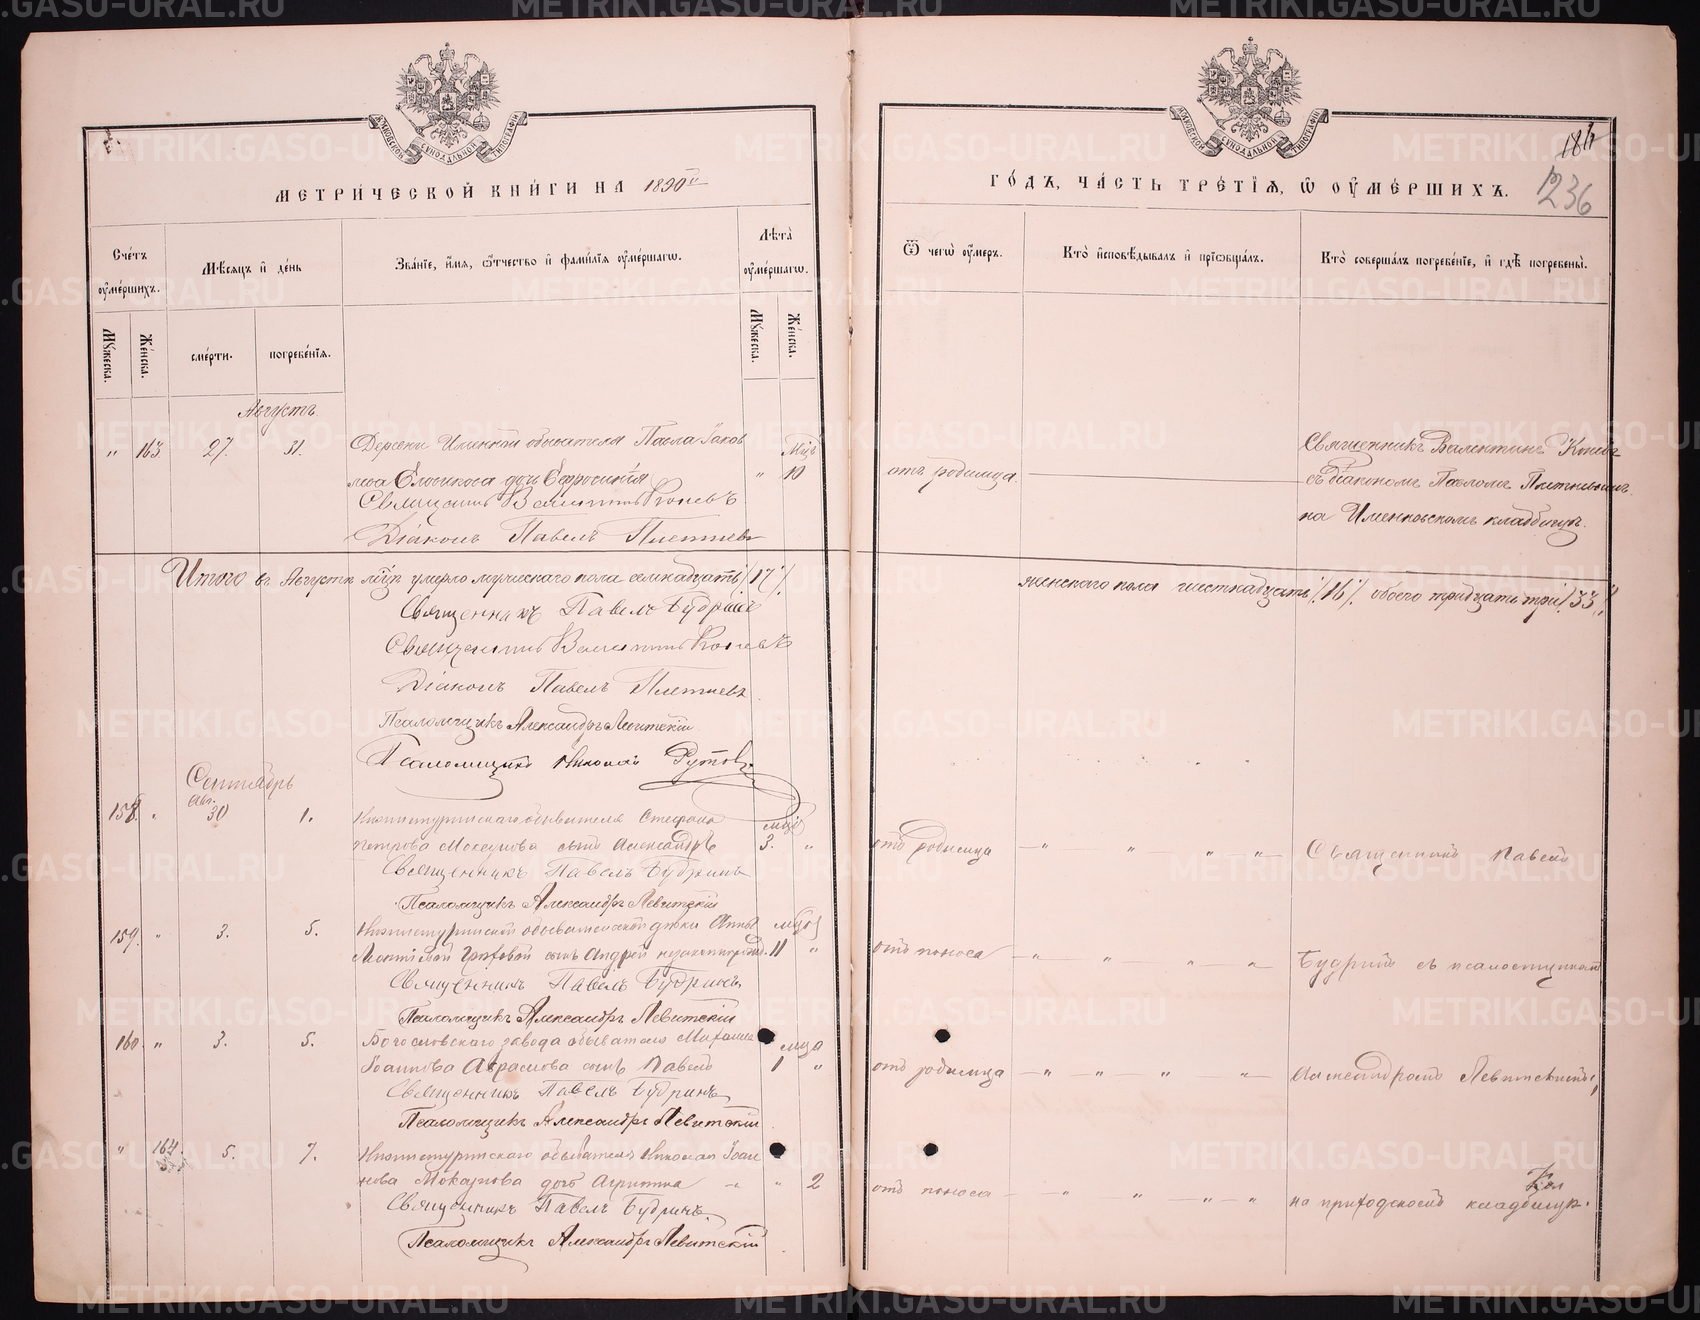 МЕТРИЧЕСКОЙ КНИГИ НА 1890й
Счетъ оумершихъ.
Мѣсяцъ и день
Званіе, имя, отчество и фамилія оумершагѡ.
Лѣта оумершагѡ.
Мужеска.
Женска.
смерти.
погребенія.
Мужеска.
Женска.
Августъ
" 163. 27. 31. Деревни Именной обывателя Павла Іаков Мцв
лева дочь Евфросинія " 10
Священникъ Валентинъ Коневъ
Діаконъ Павелъ Плетневъ
Итого въ Августѣ мцѣ умерло мужескаго пола семнадцать /17/
Священникъ Павелъ Будринъ
Священникъ Валентинъ Коневъ
Діаконъ Павелъ Плетневъ
Псаломщикъ Александръ Левитскій
Псаломщикъ Николай
Сентябрь
158. " Авг. 30 1. Нижнетуринскаго обывателя Стефана мцв
Петрова сынъ Александръ 3. "
Священникъ Павелъ Будринъ
Псаломщикъ Александръ Левитскій
159. " 3. 5. Нижнетуринской обывательской дѣвки Анны мцов
сынъ Андрей незаконнорожд. 11 "
Священникъ Павелъ Будринъ
Псаломщикъ Александръ Левитскій
160. " 3. 5. Богословскаго завода обывателя Михаила мцв
Іоаннова Абрамова сынъ Павелъ 1 "
Священникъ Павелъ Будринъ
Псаломщикъ Александръ Левитскій
" 164. 5. 7. Нижнетуринскаго обывателя Николая Іоан
нова дочь Агрипина " " 2
Священникъ Павелъ Будринъ
Псаломщикъ Александръ Левитскій
МОСКОВСКОЙ СУНОДАЛЬНОЙ ТИПОГРАФІИ
184
236
ГОДЪ, ЧАСТЬ ТРЕТІЯ, Ѡ ОУМЕРШИХЪ.
Ѿ чегѡ оумеръ.
Кто исповѣдывалъ и пріобщалъ.
Кто совершалъ погребеніе, и гдѣ погребены.
отъ родимца.
Священникъ Валентинъ Коневъ
съ діакономъ Павломъ Плетневымъ
на Именновскомъ кладбищѣ.
женскаго пола шестнадцать /16/. обоего тридцать три /33/
отъ родимца " " " " Священникъ Павелъ
отъ поноса " " " " Будринъ съ псаломщикомъ
отъ родимца " " " " Александромъ Левитскимъ,
отъ поноса " " " " на приходскомъ кладбищѣ.
METRIKI.GASO-URAL.RU